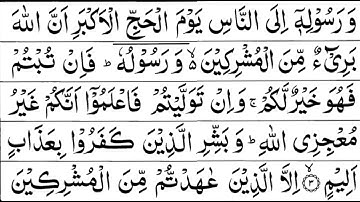 وَ رَسُوْلِهٖۤ اِلَى النَّاسِ یَوْمَ الْحَجِّ الْاَكْبَرِ اَنَّ اللّٰهَ
بَرِیْٓءٌ مِّنَ الْمُشْرِكِیْنَ ۙ۬ وَ رَسُوْلُهٗ ؕ فَاِنْ تُبْتُمْ
فَهُوَ خَیْرٌ لَّكُمْ ۚ وَ اِنْ تَوَلَّیْتُمْ فَاعْلَمُوْۤا اَنَّكُمْ غَیْرُ
مُعْجِزِی اللّٰهِ ؕ وَ بَشِّرِ الَّذِیْنَ كَفَرُوْا بِعَذَابٍ
اَلِیْمٍ ۙ﴿۳﴾ اِلَّا الَّذِیْنَ عٰهَدْتُّمْ مِّنَ الْمُشْرِكِیْنَ